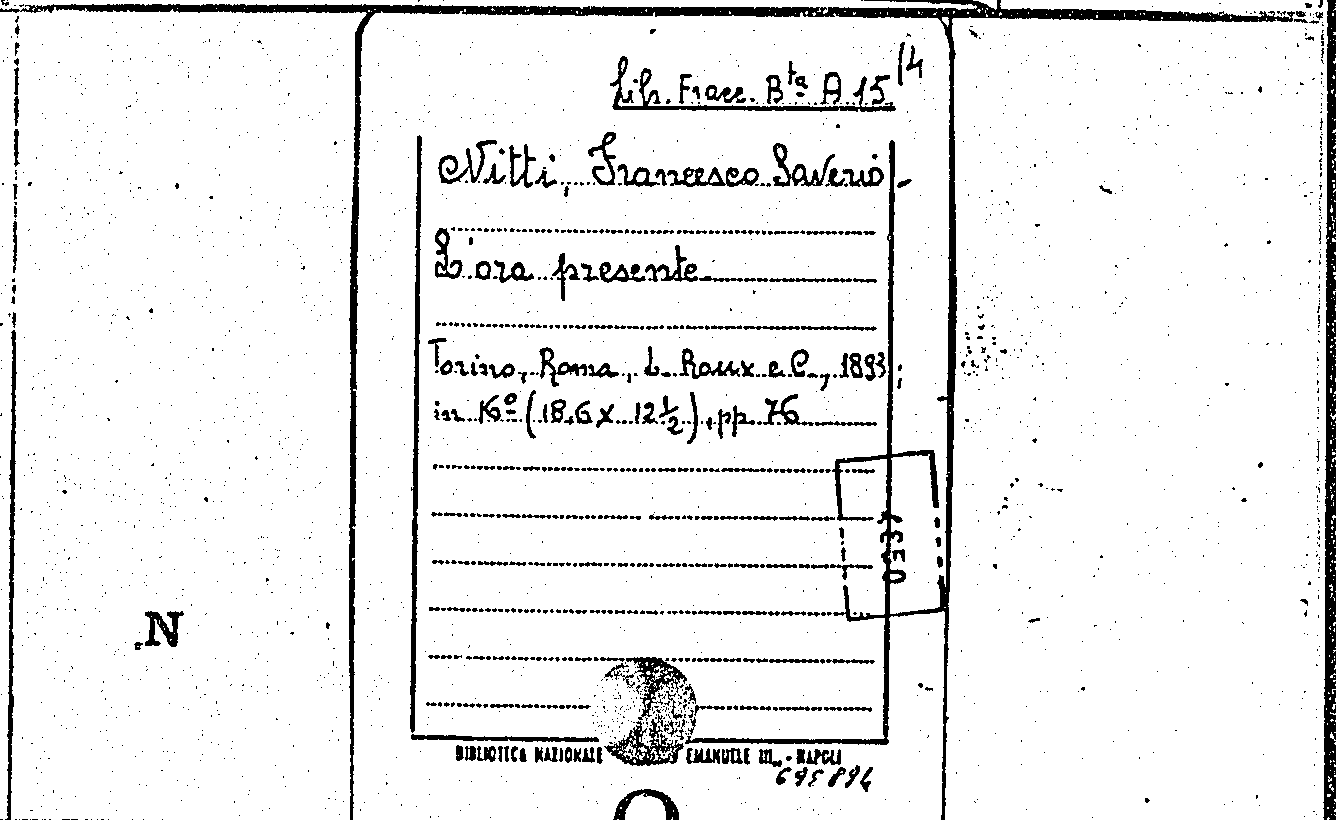 14
Lib. Fracc. Bta A 15
Nitti, Francesco Saverio.
L'ora presente.
Torino, Roma, L. Roux e C., 1893;
in 16º (18.6 x 12½), pp. 76
N
BIBLIOTECA NAZIONALE EMANUELE III. - NAPOLI